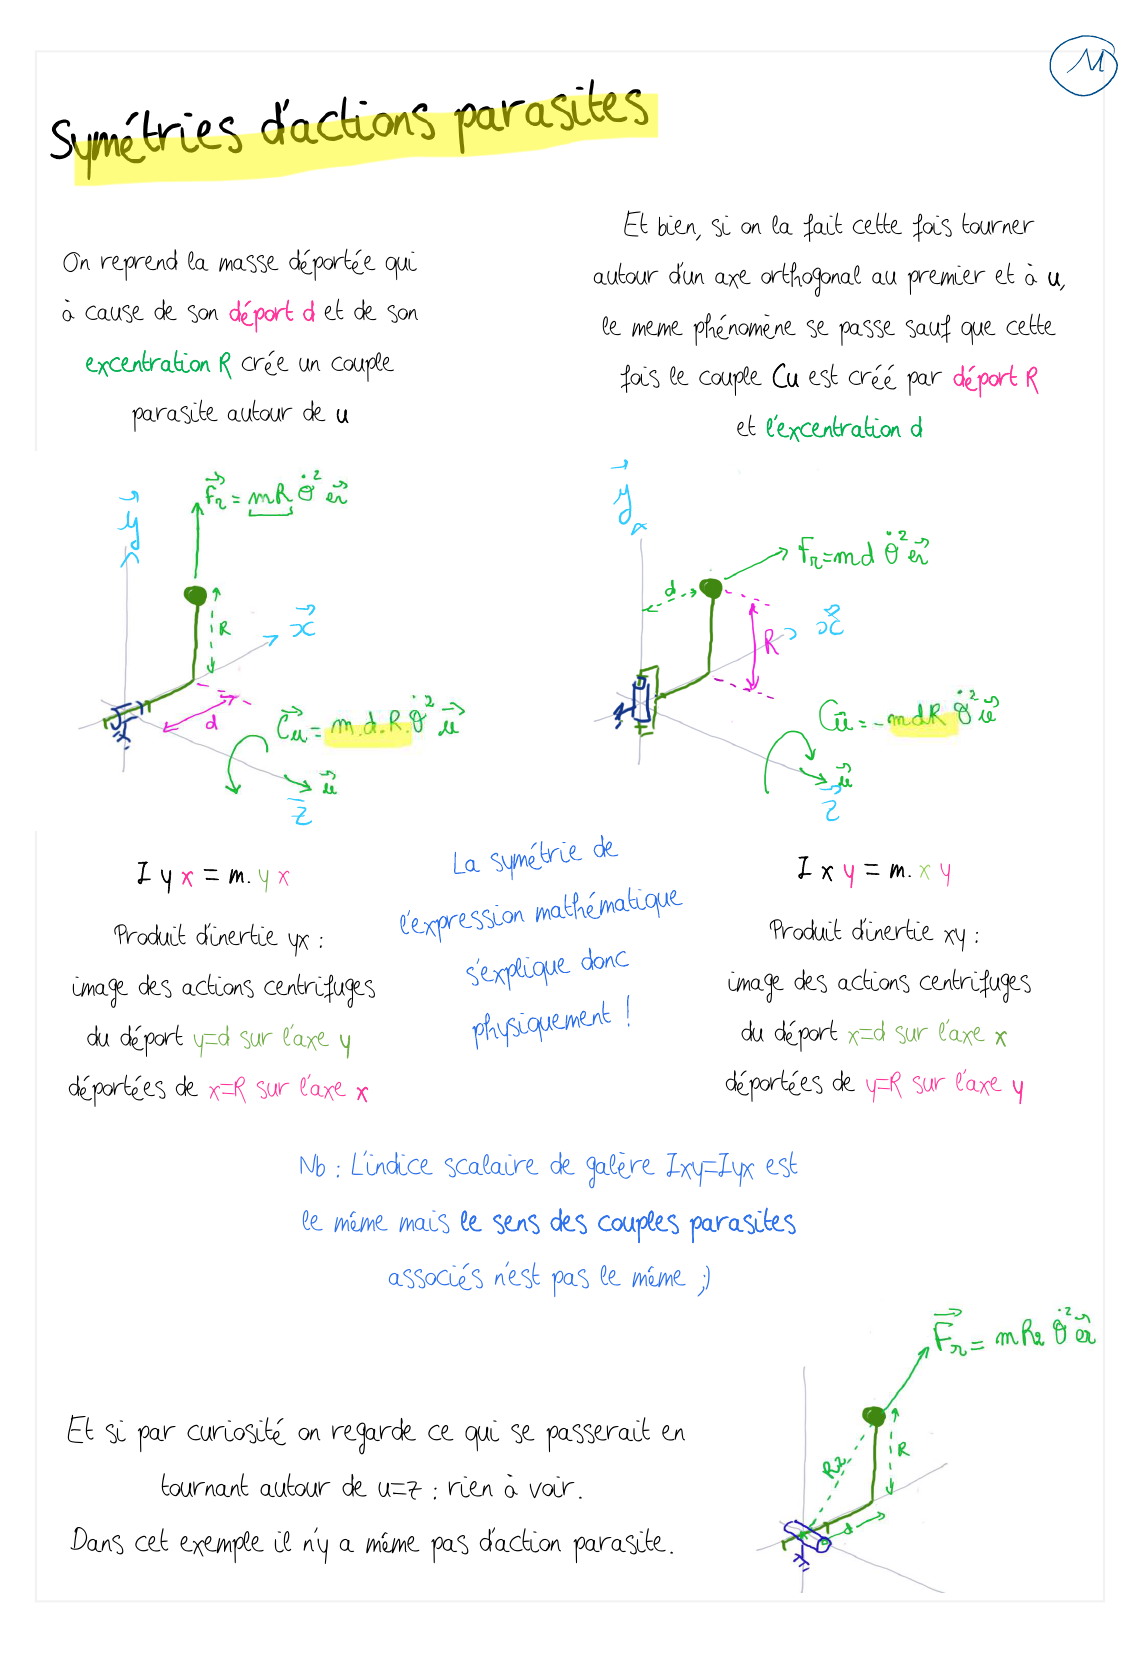 M
Symétries d'actions parasites
On reprend la masse déportée qui
à cause de son déport d et de son
excentration R crée un couple
parasite autour de u
Et bien, si on la fait cette fois tourner
autour d'un axe orthogonal au premier et à u,
le meme phénomène se passe sauf que cette
fois le couple Cu est créé par déport R
et l'excentration d
F⃗r = mR θ̇² e⃗r
y⃗
x⃗
R
d
C⃗u = m.d.R.θ̇² u⃗
u⃗
z⃗
y⃗
Fr = md θ̇² e⃗r
d
R
x⃗
Cu⃗ = -mdR θ̇² u⃗
u⃗
z⃗
I y x = m. y x
Produit d'inertie yx :
image des actions centrifuges
du déport y=d sur l'axe y
déportées de x=R sur l'axe x
La symétrie de
l'expression mathématique
s'explique donc
physiquement !
I x y = m. x y
Produit d'inertie xy :
image des actions centrifuges
du déport x=d sur l'axe x
déportées de y=R sur l'axe y
Nb : L'indice scalaire de galère Ixy=Iyx est
le même mais le sens des couples parasites
associés n'est pas le même ;)
F⃗r = mR2 θ̇² e⃗r
R2
R
d
Et si par curiosité on regarde ce qui se passerait en
tournant autour de u=z : rien à voir.
Dans cet exemple il n'y a même pas d'action parasite.